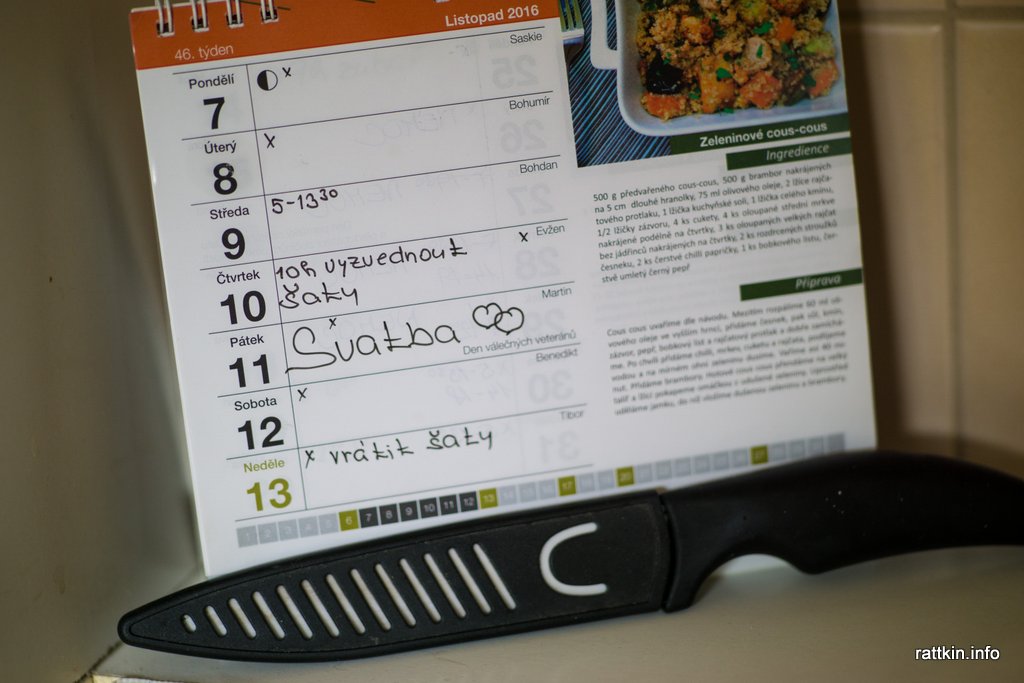 Listopad 2016
46. týden
Saskie
Pondělí
7
x
Bohumír
Úterý
8
x
Bohdan
Středa
9
5-13³⁰
Evžen
Čtvrtek
10
10h vyzvednout x
šaty
Martin
Pátek
11
x
Svatba
Den válečných veteránů
Benedikt
Sobota
12
x
Tibor
Neděle
13
x vrátit šaty
6 7 8 9 10 11 12 13 17 20 27
Zeleninové cous-cous
Ingredience
500 g předvařeného cous-cous, 500 g brambor nakrájených
na 5 cm dlouhé hranolky, 75 ml olivového oleje, 2 lžíce rajča-
tového protlaku, 1 lžička kuchyňské soli, 1 lžička celého kmínu,
1/2 lžičky zázvoru, 4 ks cukety, 4 ks oloupané střední mrkve
nakrájené podélně na čtvrtky, 3 ks oloupaných velkých rajčat
bez jádřinců nakrájených na čtvrtky, 2 ks rozdrcených stroužků
česneku, 2 ks čerstvé chilli papričky, 1 ks bobkového listu, čer-
stvě umletý černý pepř
Příprava
Cous cous uvaříme dle návodu. Mezitím rozpálíme 60 ml oli-
vového oleje ve vyšším hrnci, přidáme česnek, pak sůl, kmín,
zázvor, pepř, bobkový list a rajčatový protlak a dobře zamíchá-
me. Po chvíli přidáme chilli, mrkev, cuketu a rajčata, podlijeme
vodou a na mírném ohni zeleninu dusíme.
rattkin.info